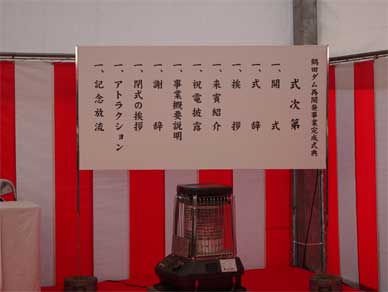 鶴田ダム再開発事業完成式典
式次第
一、開式
一、式辞
一、挨拶
一、来賓紹介
一、祝電披露
一、事業概要説明
一、謝辞
一、閉式の挨拶
一、アトラクション
一、記念放流